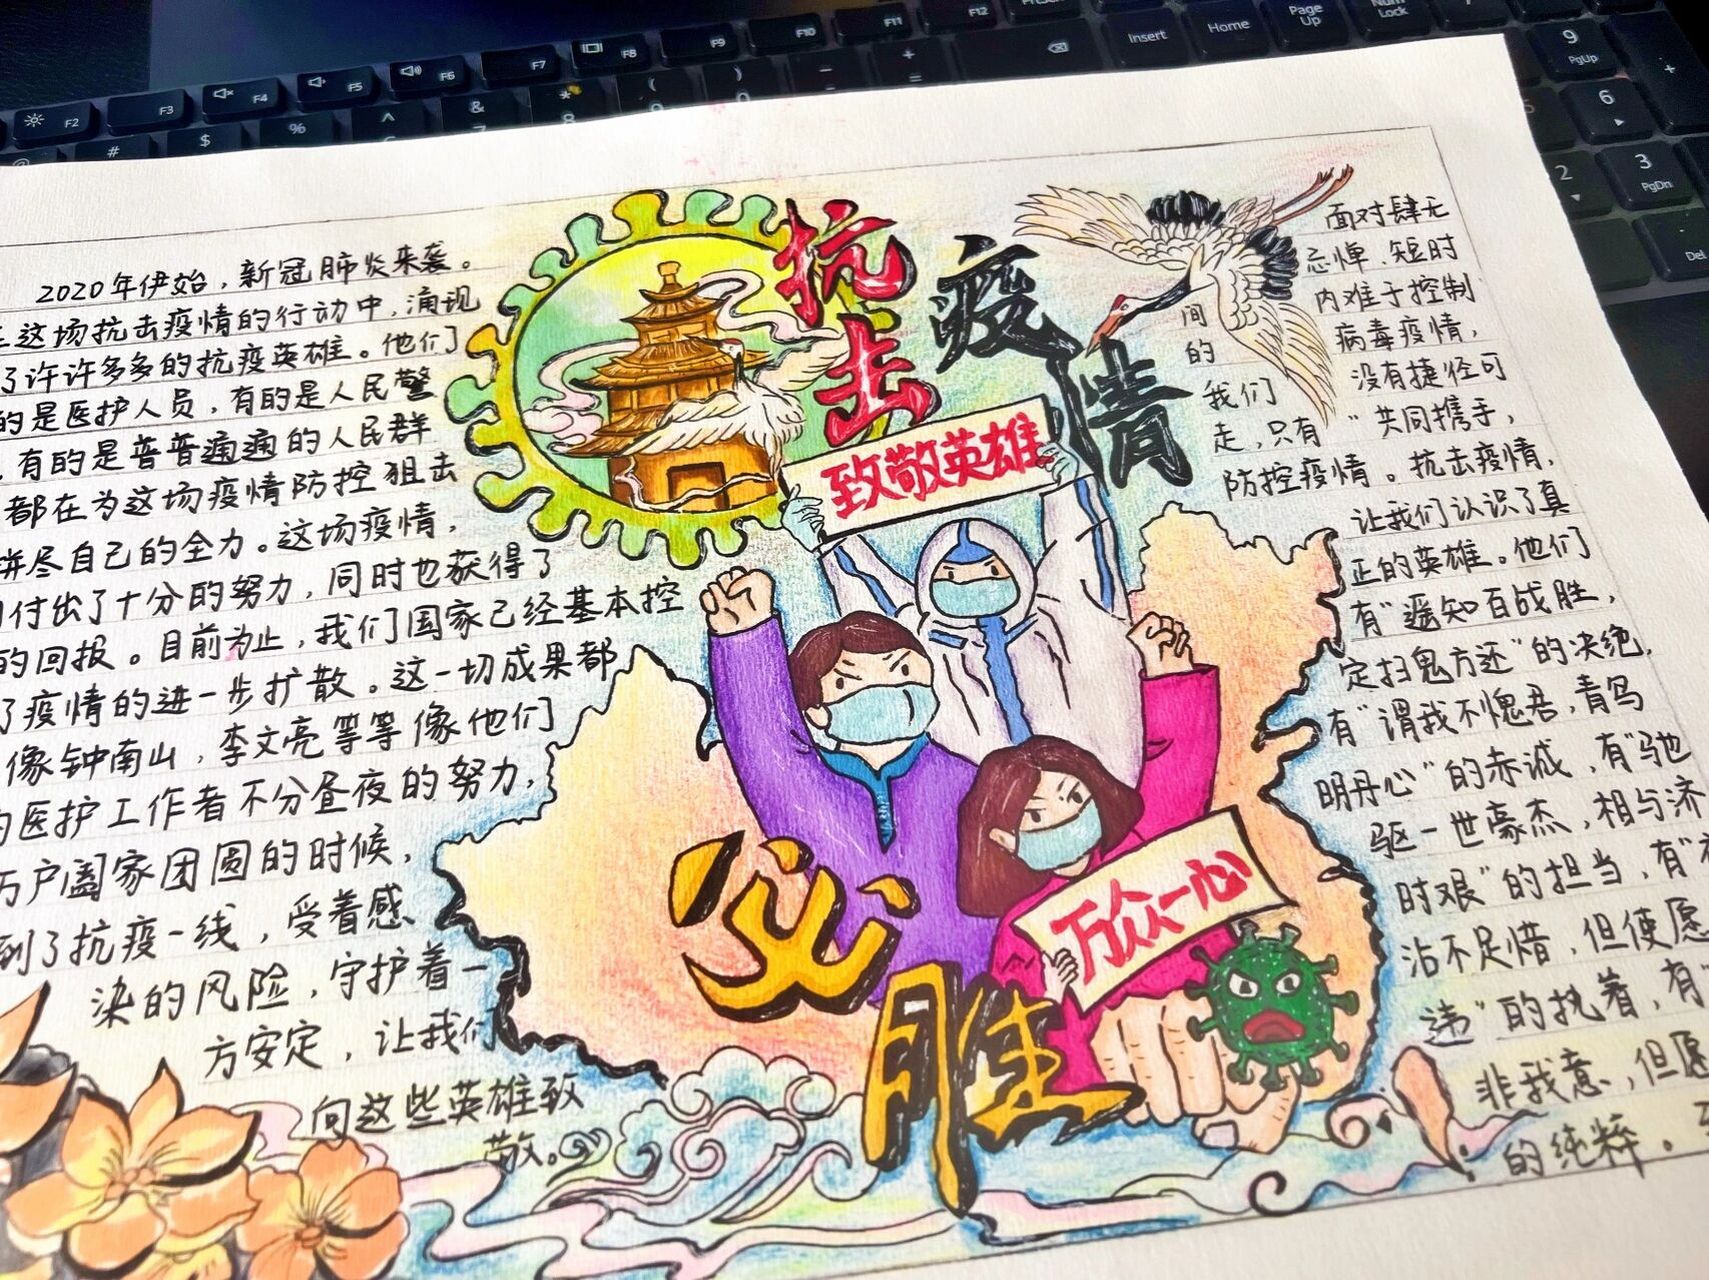 抗击疫情
致敬英雄
万众一心
必胜
2020年伊始，新冠肺炎来袭。
这场抗击疫情的行动中，涌现
了许许多多的抗疫英雄。他们
的是医护人员，有的是人民警
，有的是普普通通的人民群
都在为这场疫情防控狙击
拼尽自己的全力。这场疫情，
付出了十分的努力，同时也获得了
的回报。目前为止，我们国家已经基本控
了疫情的进一步扩散。这一切成果都
像钟南山，李文亮等等像他们
的医护工作者不分昼夜的努力，
万户阖家团圆的时候，
到了抗疫一线，受着感
染的风险，守护着一
方安定，让我们
向这些英雄致
敬。
面对肆无
忌惮、短时
间内难于控制
的病毒疫情，
我们没有捷径可
走，只有“共同携手，
防控疫情。抗击疫情，
让我们认识了真
正的英雄。他们
有“遥知百战胜，
定扫鬼方还”的决绝，
有“谓我不愧君，青鸟
明丹心”的赤诚，有“驰
驱一世豪杰，相与济
时艰”的担当，有“
沾不足惜，但使愿
违”的执着，有“
非我意，但愿
的纯粹。
F2
F3
F4
F5
F6
F7
F8
F9
F10
F11
F12
Insert
Home
Page Up
Num Lock
9 PgUp
6
3 PgDn
2
Del
# $ % ^ & * ( )